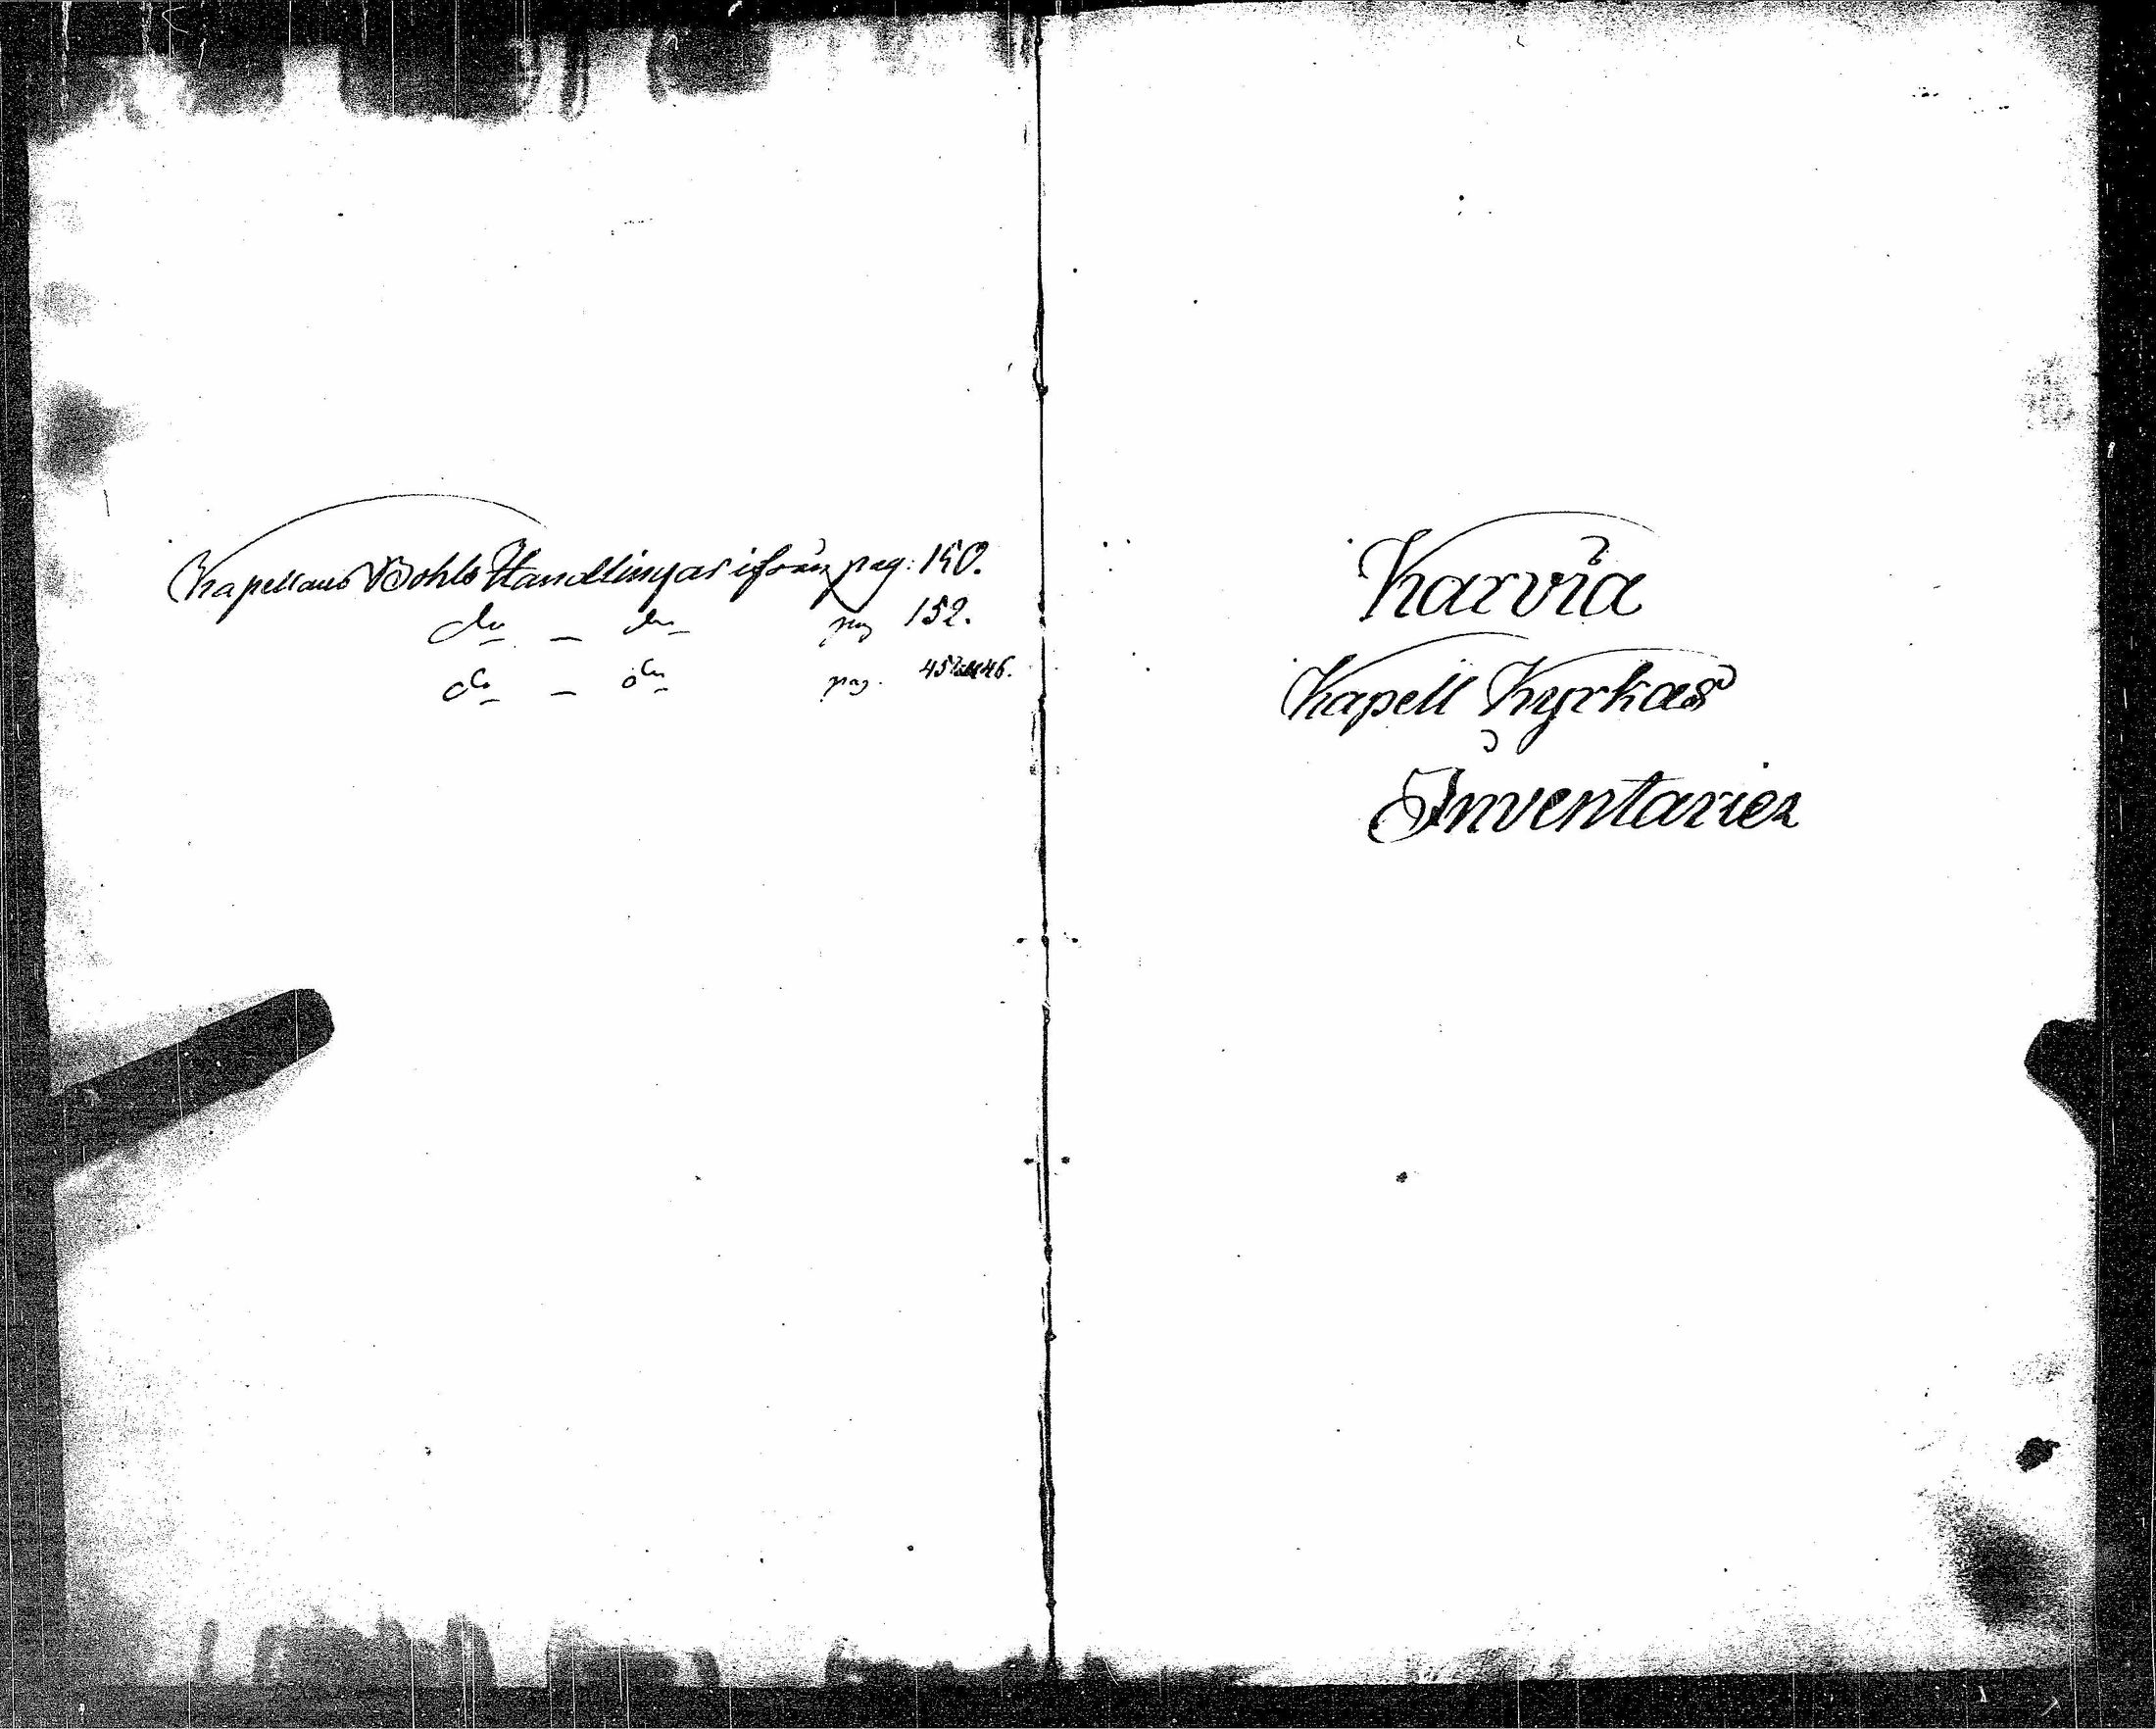 Kapellans Bohls Handlingar ifrån pag: 150.
do – do pag 152.
do – do pag. 45
Karvia
Kapell Kyrkas
Inventarier